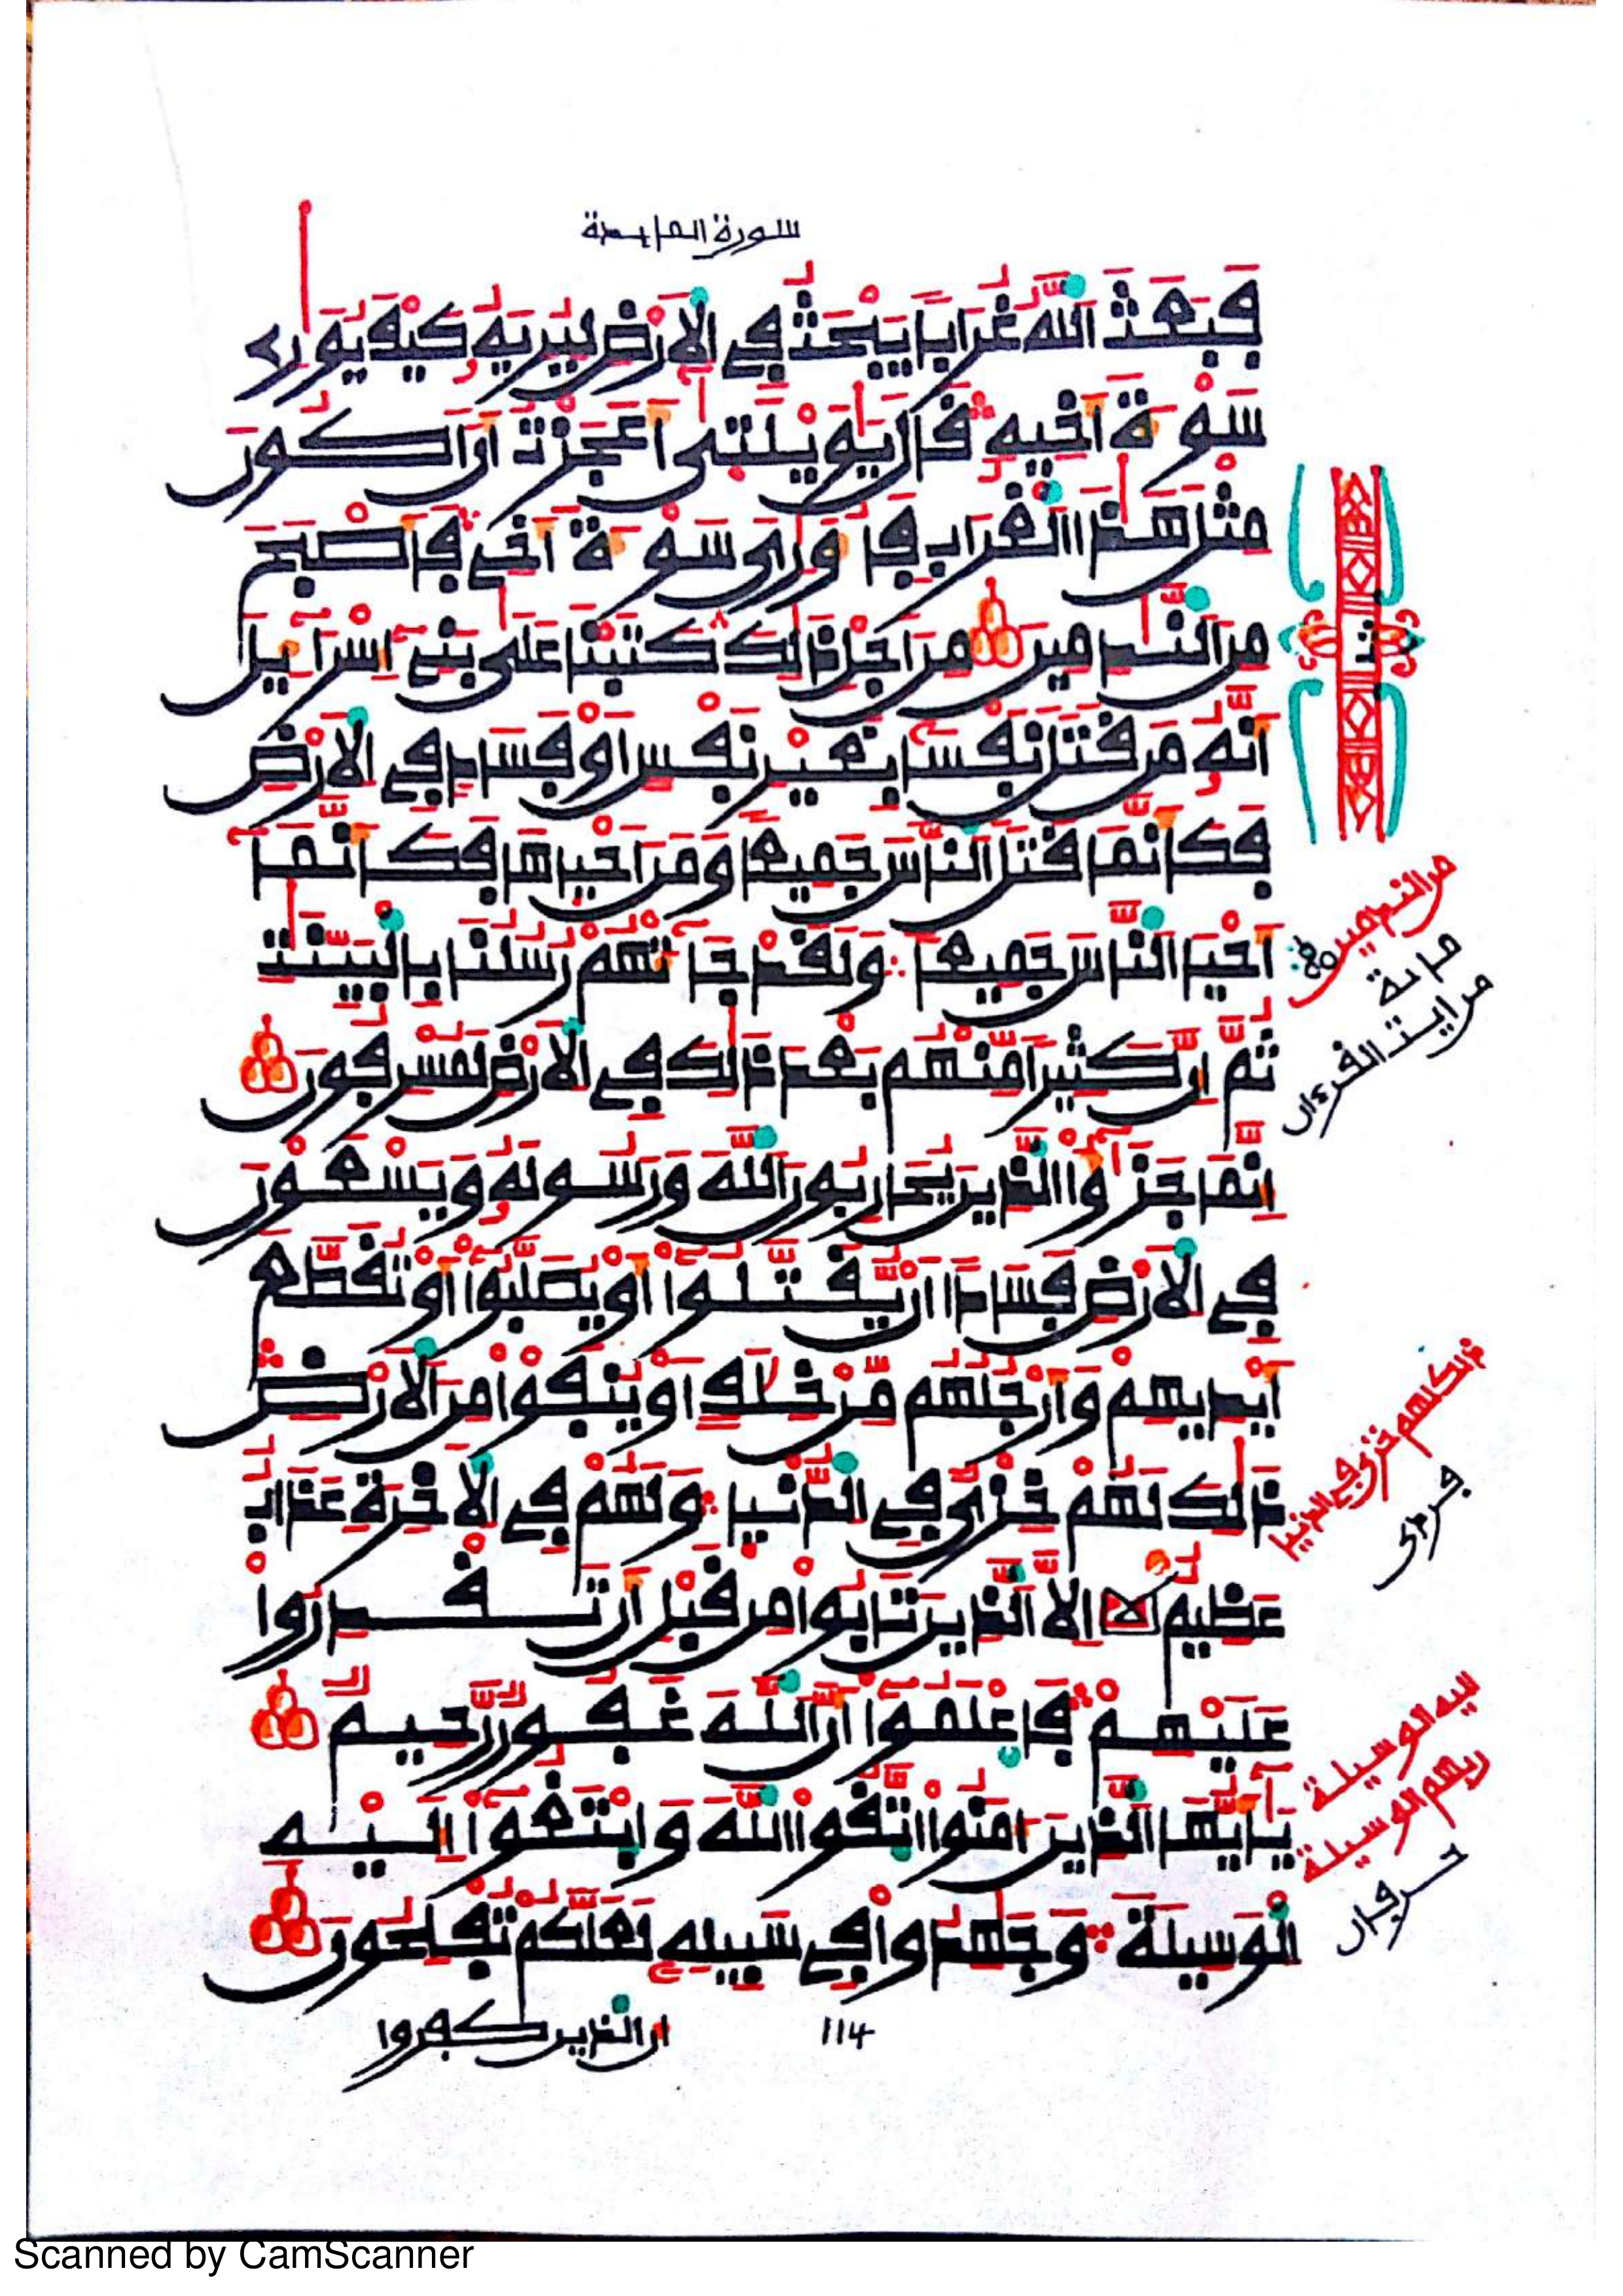 سورة المايدة
فَبَعَثَ اَللَّهُ غُرَابٗا يَبْحَثُ فِے اِلَارْضِ لِيُرِيَهُۥ كَيْفَ يُوَٰرِے
سَوْءَةَ أَخِيهِ قَالَ يَٰوَيْلَتَىٰٓ أَعَجَزْتُ أَنَ اَكُونَ
مِثْلَ هَٰذَا اَلْغُرَابِ فَأُوَٰرِيَ سَوْءَةَ أَخِے فَأَصْبَحَ
مِنَ اَلنَّٰدِمِينَ مِنَ اَجْلِ ذَٰلِكَ كَتَبْنَا عَلَىٰ بَنِےٓ إِسْرَآءِيلَ
أَنَّهُۥ مَن قَتَلَ نَفْساَۢ بِغَيْرِ نَفْسٍ اَوْ فَسَادٖ فِے اِلَارْضِ
فَكَأَنَّمَا قَتَلَ اَلنَّاسَ جَمِيعٗا وَمَنَ اَحْيَاهَا فَكَأَنَّمَآ
أَحْيَا اَلنَّاسَ جَمِيعٗا وَلَقَدْ جَآءَتْهُمْ رُسُلُنَا بِالْبَيِّنَٰتِ
ثُمَّ إِنَّ كَثِيرٗا مِّنْهُم بَعْدَ ذَٰلِكَ فِے اِلَارْضِ لَمُسْرِفُونَ
إِنَّمَا جَزَٰٓؤُاْ اُلذِينَ يُحَارِبُونَ اَللَّهَ وَرَسُولَهُۥ وَيَسْعَوْنَ
فِے اِلَارْضِ فَسَاداً اَنْ يُّقَتَّلُوٓاْ أَوْ يُصَلَّبُوٓاْ أَوْ تُقَطَّعَ
أَيْدِيهِمْ وَأَرْجُلُهُم مِّنْ خِلَٰفٍ اَوْ يُنفَوْاْ مِنَ اَلَارْضِ
ذَٰلِكَ لَهُمْ خِزْيٞ فِے اِلدُّنْيَا وَلَهُمْ فِے اِلَاخِرَةِ عَذَابٌ
عَظِيمٌ اِلَّا اَلذِينَ تَابُواْ مِن قَبْلِ أَن تَقْدِرُواْ
عَلَيْهِمْ فَاعْلَمُوٓاْ أَنَّ اَللَّهَ غَفُورٞ رَّحِيمٞ
يَٰٓأَيُّهَا اَلذِينَ ءَامَنُواْ اُتَّقُواْ اُللَّهَ وَابْتَغُوٓاْ إِلَيْهِ
اِلْوَسِيلَةَ وَجَٰهِدُواْ فِے سَبِيلِهِۦ لَعَلَّكُمْ تُفْلِحُونَ
ان الذين كفروا
114
ثمن
من الندمين
ماىة
من ايت القرءان
ذلك لهم خزي في الدنيا
ليه الوسيلة
ربهم الوسيلة
حرفان
Scanned by CamScanner